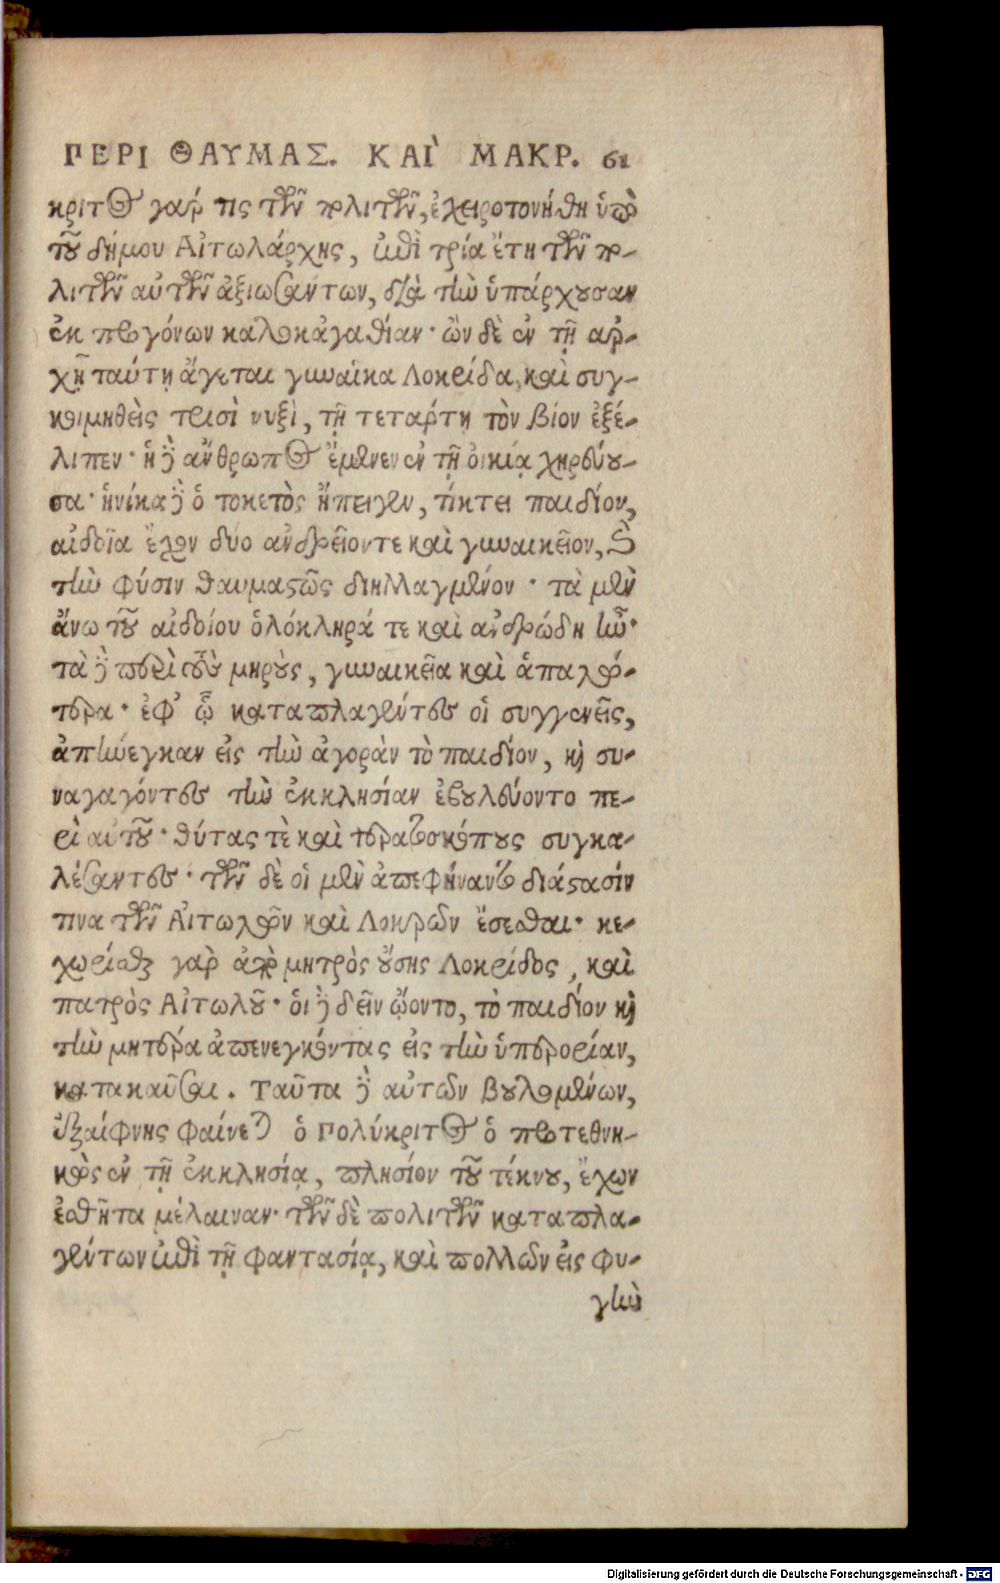 ΠΕΡΙ ΘΑΥΜΑΣ. ΚΑΙ ΜΑΚΡ. 61
κριτος γάρ τις τῶν πολιτῶν, ἐχειροτονήθη ὑπὸ
τοῦ δήμου Αἰτωλάρχης, ἐπὶ τρία ἔτη τῶν πο-
λιτῶν αὐτῶν ἀξιωσάντων, διὰ τὴν ὑπάρχουσαν
ἐκ προγόνων καλοκἀγαθίαν· ὢν δὲ ἐν τῇ ἀρ-
χῇ ταύτῃ ἄγεται γυναῖκα Λοκρίδα, καὶ συγ-
κοιμηθεὶς τρισὶ νυξὶ, τῇ τετάρτῃ τὸν βίον ἐξέ-
λιπεν· ἡ δὲ ἄνθρωπος ἔμενεν ἐν τῇ οἰκίᾳ χηρεύου-
σα· ἡνίκα δὲ ὁ τοκετὸς ἤπειγεν, τίκτει παιδίον,
αἰδοῖα ἔχον δύο ἀνδρεῖόν τε καὶ γυναικεῖον, καὶ
τὴν φύσιν θαυμαστῶς διηλλαγμένον· τὰ μὲν
ἄνω τοῦ αἰδοίου ὁλόκληρά τε καὶ ἀνδρώδη ἦν·
τὰ δὲ περὶ τοὺς μηροὺς, γυναικεῖα καὶ ἁπαλώ-
τερα· ἐφ' ᾧ καταπλαγέντες οἱ συγγενεῖς,
ἀπήνεγκαν εἰς τὴν ἀγορὰν τὸ παιδίον, καὶ συ-
ναγαγόντες τὴν ἐκκλησίαν ἐβουλεύοντο πε-
ρὶ αὐτοῦ· θύτας τὲ καὶ τερατοσκόπους συγκα-
λέσαντες· τῶν δὲ οἱ μὲν ἀπεφήναντο διάστασίν
τινα τῶν Αἰτωλῶν καὶ Λοκρῶν ἔσεσθαι· κε-
χωρίσθαι γὰρ ἀπὸ μητρὸς οὔσης Λοκρίδος, καὶ
πατρὸς Αἰτωλοῦ· οἱ δὲ δεῖν ᾤοντο, τὸ παιδίον καὶ
τὴν μητέρα ἀπενεγκόντας εἰς τὴν ὑπερορίαν,
κατακαῦσαι. Ταῦτα δὲ αὐτῶν βουλομένων,
ἐξαίφνης φαίνεται ὁ Πολύκριτος ὁ προτεθνη-
κὼς ἐν τῇ ἐκκλησίᾳ, πλησίον τοῦ τέκνου, ἔχων
ἐσθῆτα μέλαιναν· τῶν δὲ πολιτῶν καταπλα-
γέντων ἐπὶ τῇ φαντασίᾳ, καὶ πολλῶν εἰς φυ-
γὴν
Digitalisierung gefördert durch die Deutsche Forschungsgemeinschaft - DFG